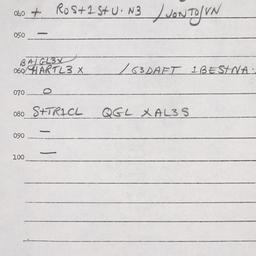 060 + ROS+1S+U. N3 / JONTO/VN
050 —
BA/GL3X
060 HARTL3 X / G3DAFT 1BES+NA.
070 O
080 S++R1CL QGL XAL3S
090 —
100 —